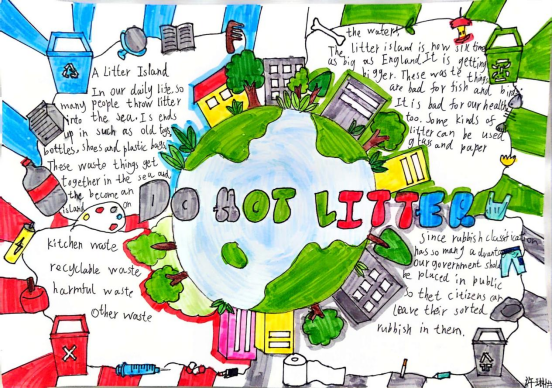 A Litter Island
In our daily life, so
many people throw litter
into the sea. Is ends
up in such as old toys,
bottles, shoes and plastic bags.
These waste things get
together in the sea and
the become an
island on
the water.
The litter island is now six times
as big as England. It is getting
bigger. These waste things
are bad for fish and birds.
It is bad for our health
too. Some kinds of
litter can be used
glass and paper
DO NOT LITTER
kitchen waste
recyclable waste
harmful waste
other waste
since rubbish classification
has so many advantages
our government should
be placed in public
so thet citizens can
leave their sorted
rubbish in them.